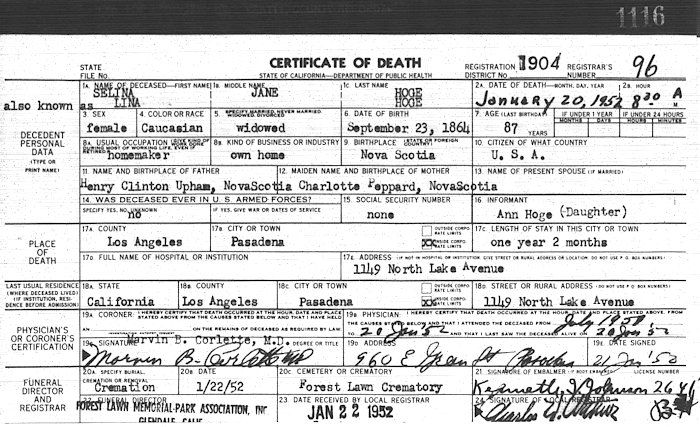 1116
STATE FILE No.
CERTIFICATE OF DEATH
STATE OF CALIFORNIA—DEPARTMENT OF PUBLIC HEALTH
REGISTRATION DISTRICT No. 1904 REGISTRAR'S NUMBER 96
1A. NAME OF DECEASED—FIRST NAME 1B. MIDDLE NAME 1C. LAST NAME 2A. DATE OF DEATH—MONTH, DAY, YEAR 2B. HOUR
SELINA JANE HOGE
also known as LINA HOGE January 20, 1952 8:30 A M
DECEDENT PERSONAL DATA (TYPE OR PRINT NAME)
3. SEX 4. COLOR OR RACE 5. SPECIFY MARRIED, NEVER MARRIED, WIDOWED DIVORCED 6. DATE OF BIRTH 7. AGE (LAST BIRTHDAY) IF UNDER 1 YEAR IF UNDER 24 HOURS
female Caucasian widowed September 23, 1864 87 YEARS MONTHS DAYS HOURS MIN
8A. USUAL OCCUPATION 8B. KIND OF BUSINESS OR INDUSTRY 9. BIRTHPLACE 10. CITIZEN OF WHAT COUNTRY
homemaker own home Nova Scotia U. S. A.
11. NAME AND BIRTHPLACE OF FATHER 12. MAIDEN NAME AND BIRTHPLACE OF MOTHER 13. NAME OF PRESENT SPOUSE (IF MARRIED)
Henry Clinton Upham, NovaScotia Charlotte Peppard, NovaScotia
14. WAS DECEASED EVER IN U. S. ARMED FORCES? 15. SOCIAL SECURITY NUMBER 16. INFORMANT
SPECIFY YES, NO, UNKNOWN IF YES, GIVE WAR OR DATES OF SERVICE
no none Ann Hoge (Daughter)
PLACE OF DEATH
17A. COUNTY 17B. CITY OR TOWN OUTSIDE CORPORATE LIMITS INSIDE CORPORATE LIMITS 17C. LENGTH OF STAY IN THIS CITY OR TOWN
Los Angeles Pasadena XX one year 2 months
17D. FULL NAME OF HOSPITAL OR INSTITUTION 17E. ADDRESS
1149 North Lake Avenue
LAST USUAL RESIDENCE (WHERE DECEASED LIVED) (IF INSTITUTION, RESIDENCE BEFORE ADMISSION)
18A. STATE 18B. COUNTY 18C. CITY OR TOWN OUTSIDE CORPORATE LIMITS INSIDE CORPORATE LIMITS 18D. STREET OR RURAL ADDRESS
California Los Angeles Pasadena XX 1149 North Lake Avenue
PHYSICIAN'S OR CORONER'S CERTIFICATION
19A. CORONER: I HEREBY CERTIFY THAT DEATH OCCURRED AT THE HOUR, DATE AND PLACE STATED ABOVE FROM THE CAUSES STATED BELOW AND THAT I HAVE HELD AN ON THE REMAINS OF DECEASED AS REQUIRED BY LAW
19B. PHYSICIAN: I HEREBY CERTIFY THAT DEATH OCCURRED AT THE HOUR, DATE AND PLACE STATED ABOVE, FROM THE CAUSES STATED BELOW AND THAT I ATTENDED THE DECEASED FROM July 1950
20 Jan 52 AND THAT I LAST SAW THE DECEASED ALIVE ON 20 Jan 52
19C. SIGNATURE Marvin B. Corlette, M.D. DEGREE OR TITLE 19D. ADDRESS
Marvin B. Corlette MD 960 E Green St Pasadena 21 Jan '52
FUNERAL DIRECTOR AND REGISTRAR
20A. SPECIFY BURIAL, CREMATION OR REMOVAL 20B. DATE 20C. CEMETERY OR CREMATORY 21. SIGNATURE OF EMBALMER
Cremation 1/22/52 Forest Lawn Crematory Kenneth Johnson
23. DATE RECEIVED BY LOCAL REGISTRAR 24. SIGNATURE OF LOCAL REGISTRAR
FOREST LAWN MEMORIAL-PARK ASSOCIATION, INC JAN 22 1952 Charles
GLENDALE, CALIF